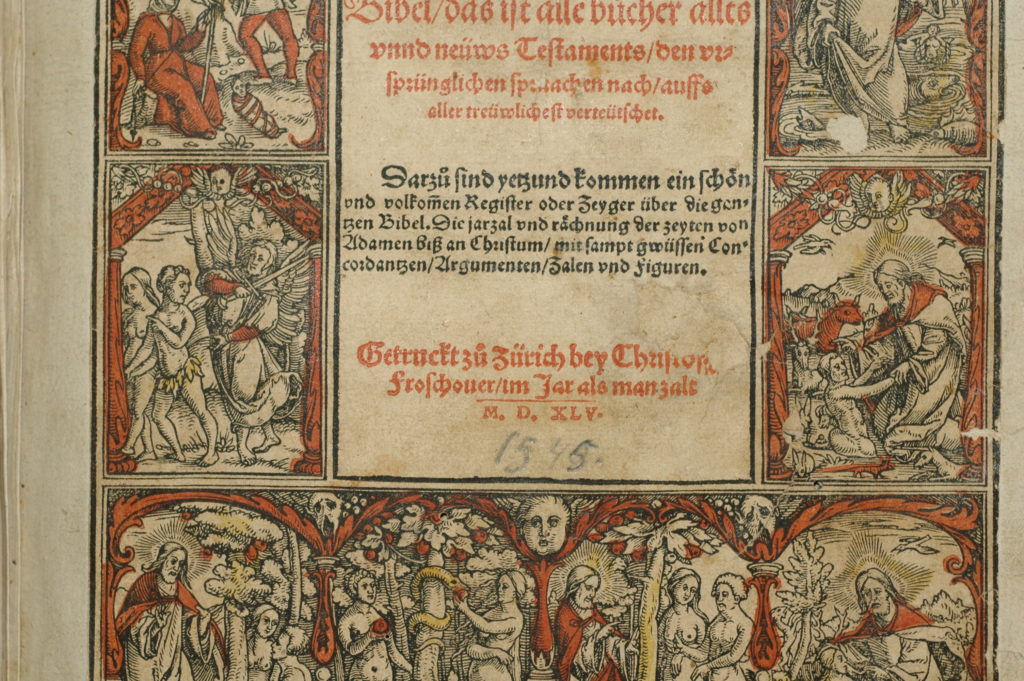 Bibel/das ist alle bücher allts
vnnd neüws Testaments/den vr-
sprünglichen spraachen nach/auffs
aller treüwlichest verteütschet.
Darzů sind yetzund kommen ein schön
vnd volkom̄en Register oder Zeyger über die gen-
tzen Bibel. Die jarzal vnd rächnung der zeyten von
Adamen biß an Christum/ mit sampt gwüssen Con-
cordantzen/Argumenten/Zalen vnd Figuren.
Getruckt zů Zürich bey Christof
Froschouer/im Jar als man zalt
M. D. XLV.
1545.